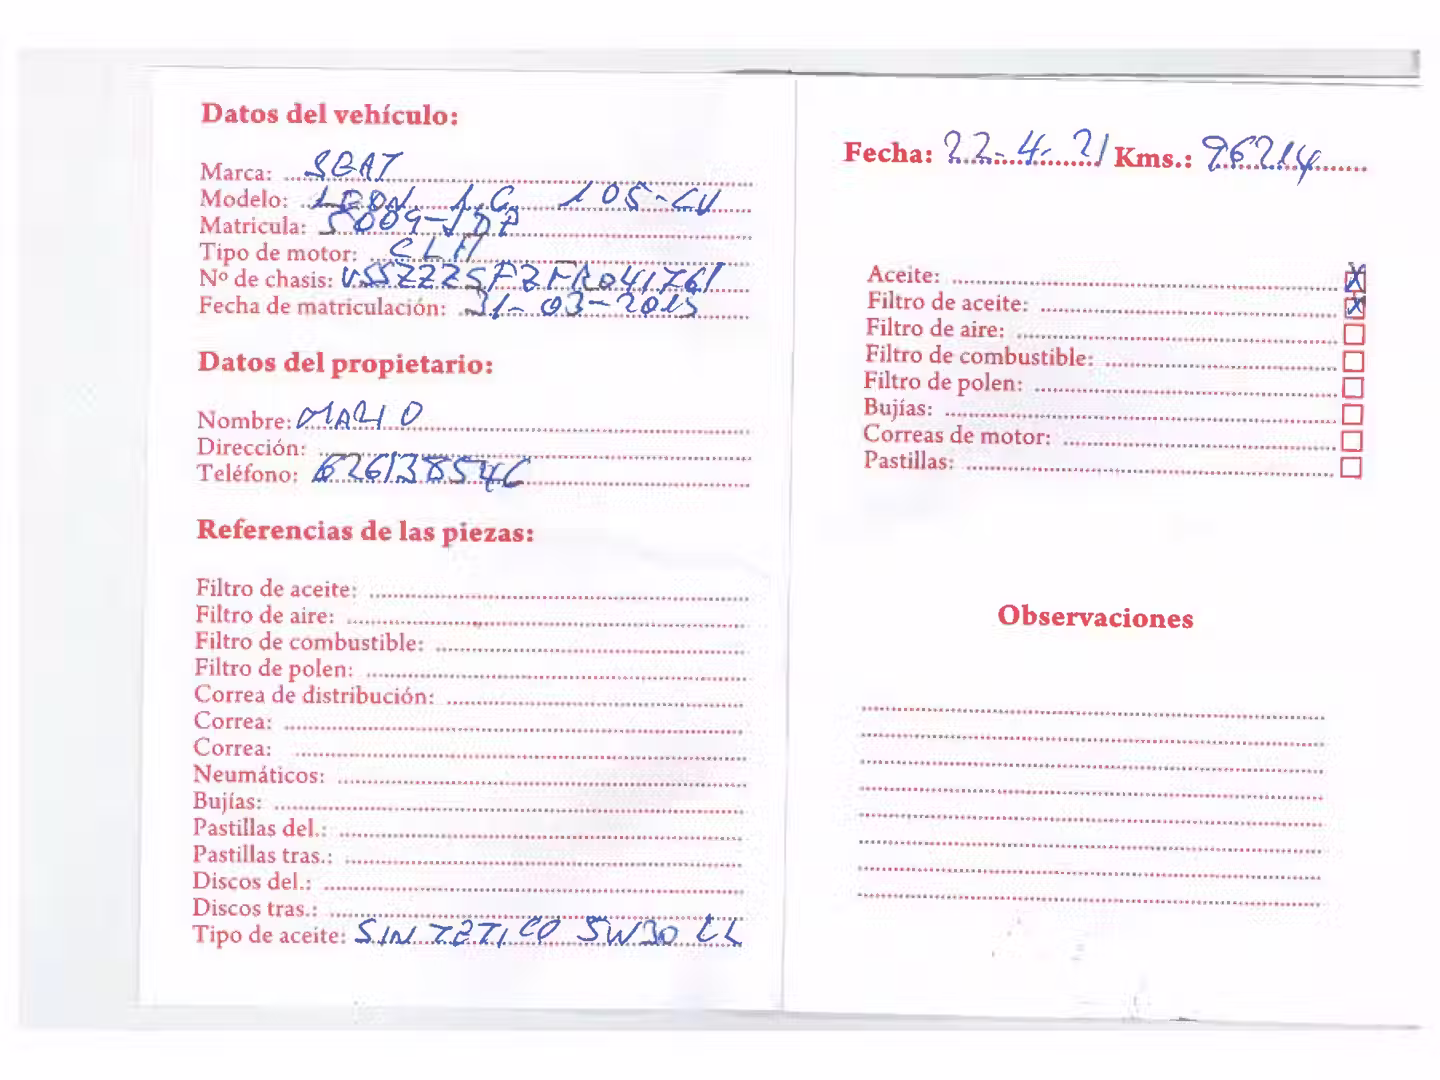 Datos del vehículo:
Marca: SEAT
Modelo: LEON 1.6 105-CV
Matricula: 5009-JDP
Tipo de motor: CLH
Nº de chasis: VSSZZZ5FZFR041761
Fecha de matriculación: 31-03-2015
Datos del propietario:
Nombre: MARIO
Dirección:
Teléfono: 626138546
Referencias de las piezas:
Filtro de aceite:
Filtro de aire:
Filtro de combustible:
Filtro de polen:
Correa de distribución:
Correa:
Correa:
Neumáticos:
Bujías:
Pastillas del.:
Pastillas tras.:
Discos del.:
Discos tras.:
Tipo de aceite: SINTETICO 5W30 LL
Fecha: 22-4-21 Kms.: 96214
Aceite: X
Filtro de aceite: X
Filtro de aire:
Filtro de combustible:
Filtro de polen:
Bujías:
Correas de motor:
Pastillas:
Observaciones